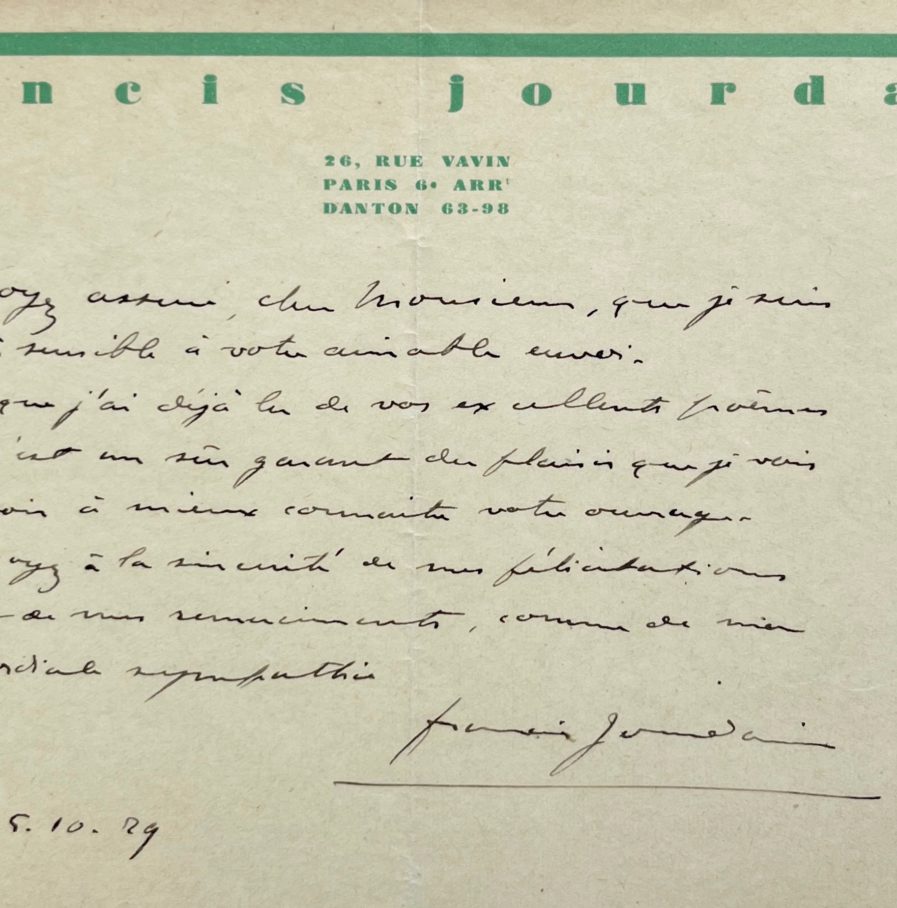 ncis jourda
26, RUE VAVIN
PARIS 6e ARRt
DANTON 63-98
oyez assuré, cher Monsieur, que je suis
sensible à votre aimable envoi.
que j'ai déjà lu de vos excellents poèmes
'est un sûr garant du plaisir que je vais
oir à mieux connaître votre ouvrage.
oyez à la sincérité de mes félicitations
de mes remerciements, comme de ma
rdiale sympathie
francis Jourdain
5.10.29